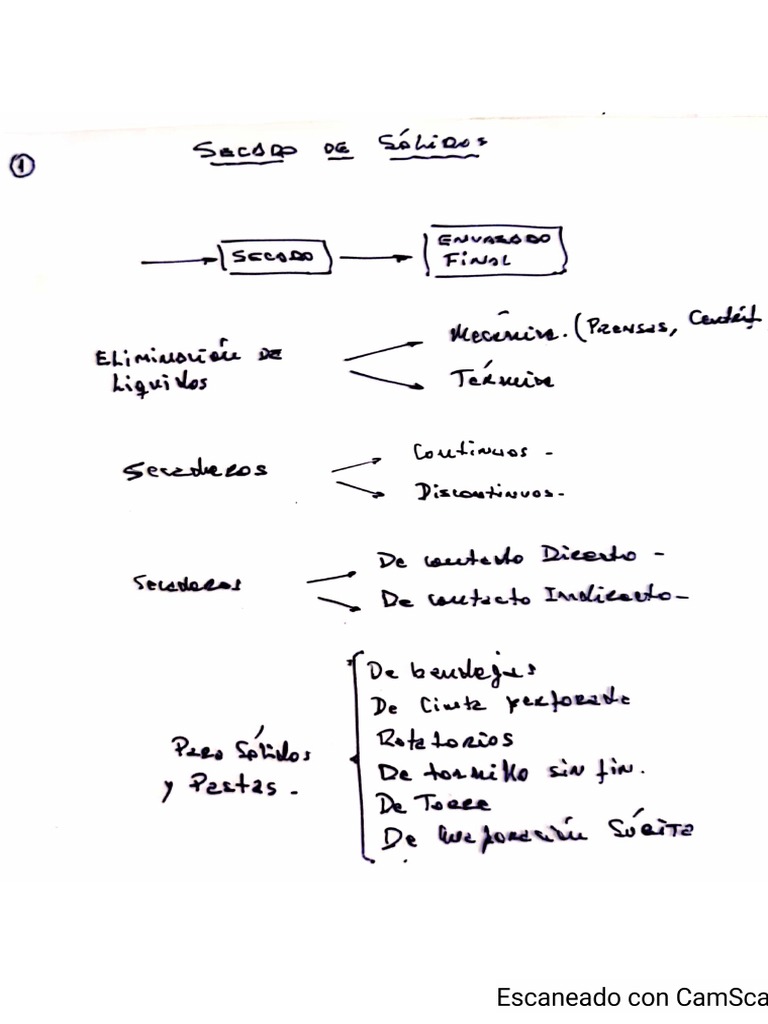 1
SECADO DE SÓLIDOS
SECADO
ENVASADO
FINAL
ELIMINACIÓN DE
Líquidos
Mecánica. (PRENSAS, Centrif
Térmica
Secaderos
Continuos -
Discontinuos -
Secaderos
De contacto Directo -
De contacto Indirecto -
Para Sólidos
y Pastas -
De bandejas
De Cinta perforada
Rotatorios
De tornillo sin fin.
De Torre
De evaporación Súbita
Escaneado con CamSca